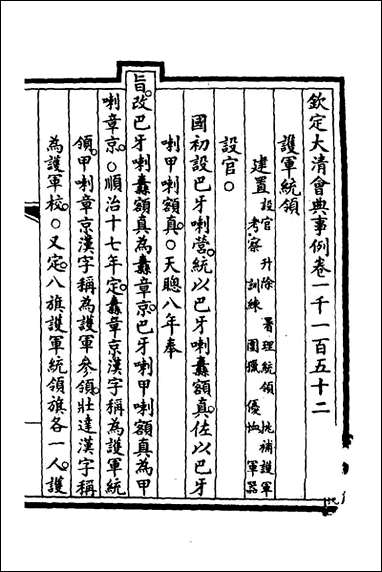 欽定大清會典事例卷一千一百五十二
護軍統領
建置 設官 升除 署理統領 挑補護軍
考察 訓練 圍獵 優恤 軍器
設官○
國初設巴牙喇營。統以巴牙喇纛額真。佐以巴牙
喇甲喇額真。○天聰八年奉
旨。改巴牙喇纛額真為纛章京。巴牙喇甲喇額真為甲
喇章京。○順治十七年定。纛章京漢字稱為護軍統
領。甲喇章京漢字稱為護軍參領。壯達漢字稱
為護軍校。○又定。八旗護軍統領旗各一人。護